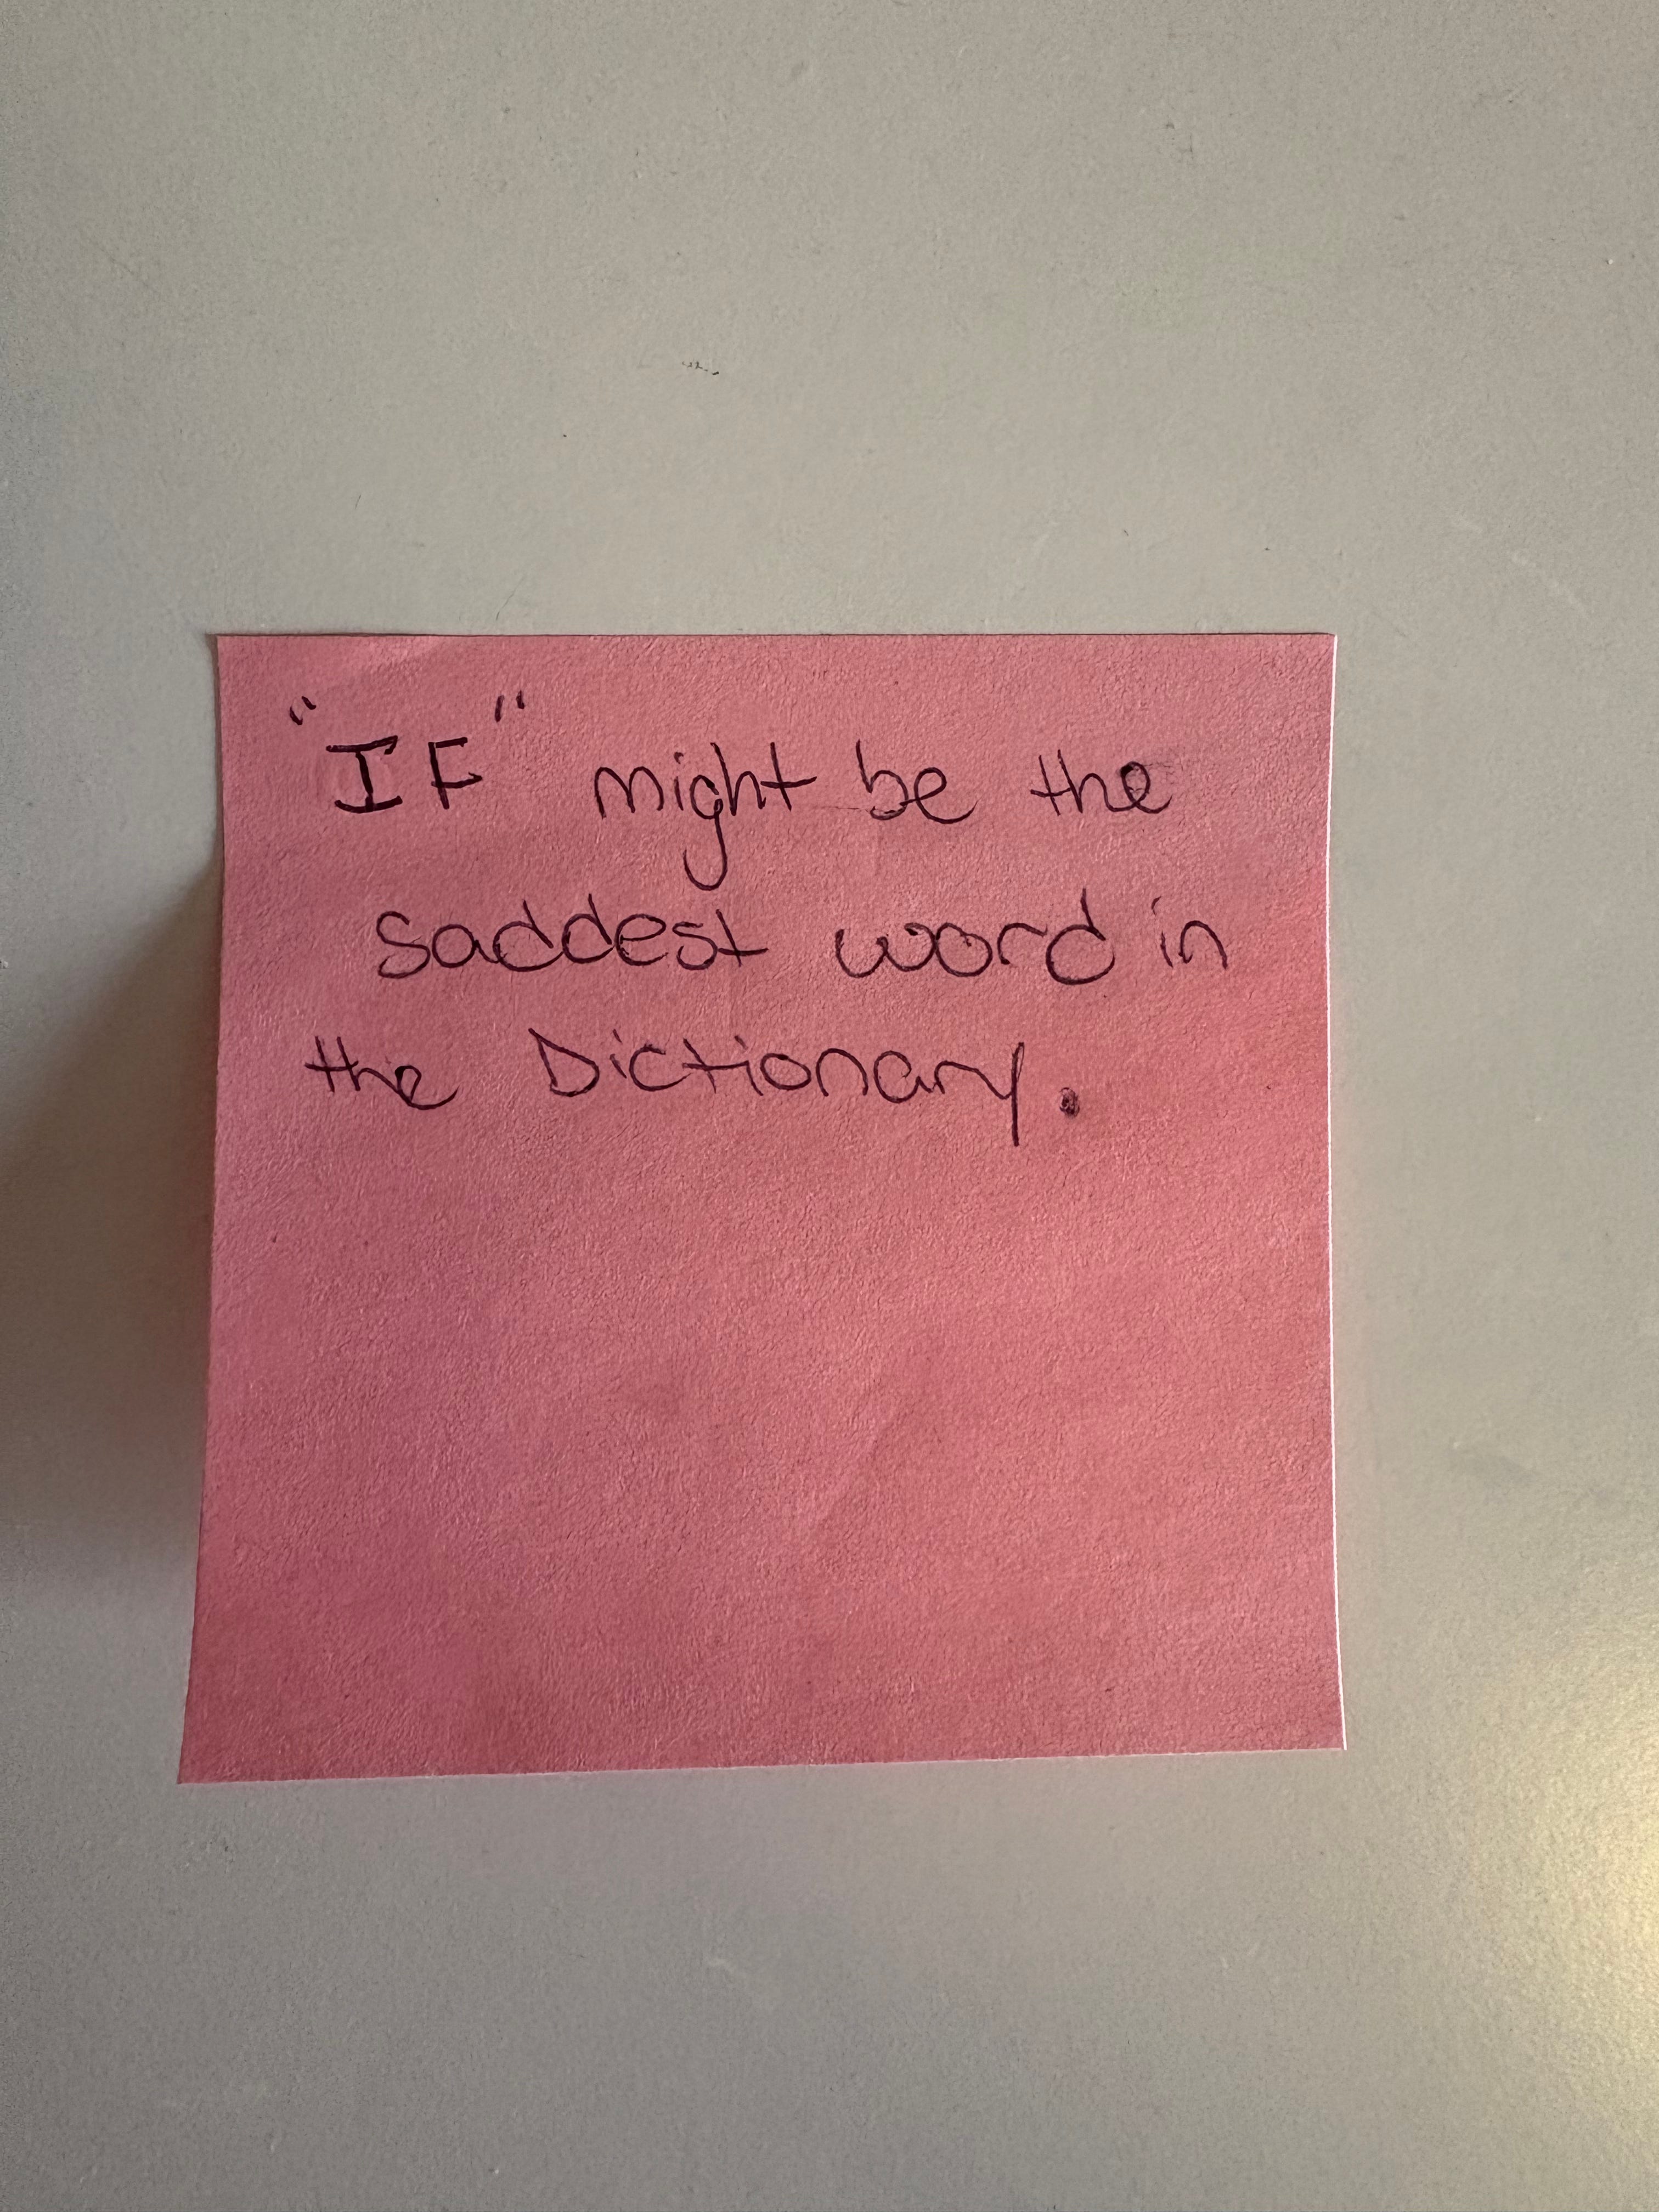 "IF" might be the
saddest word in
the Dictionary.